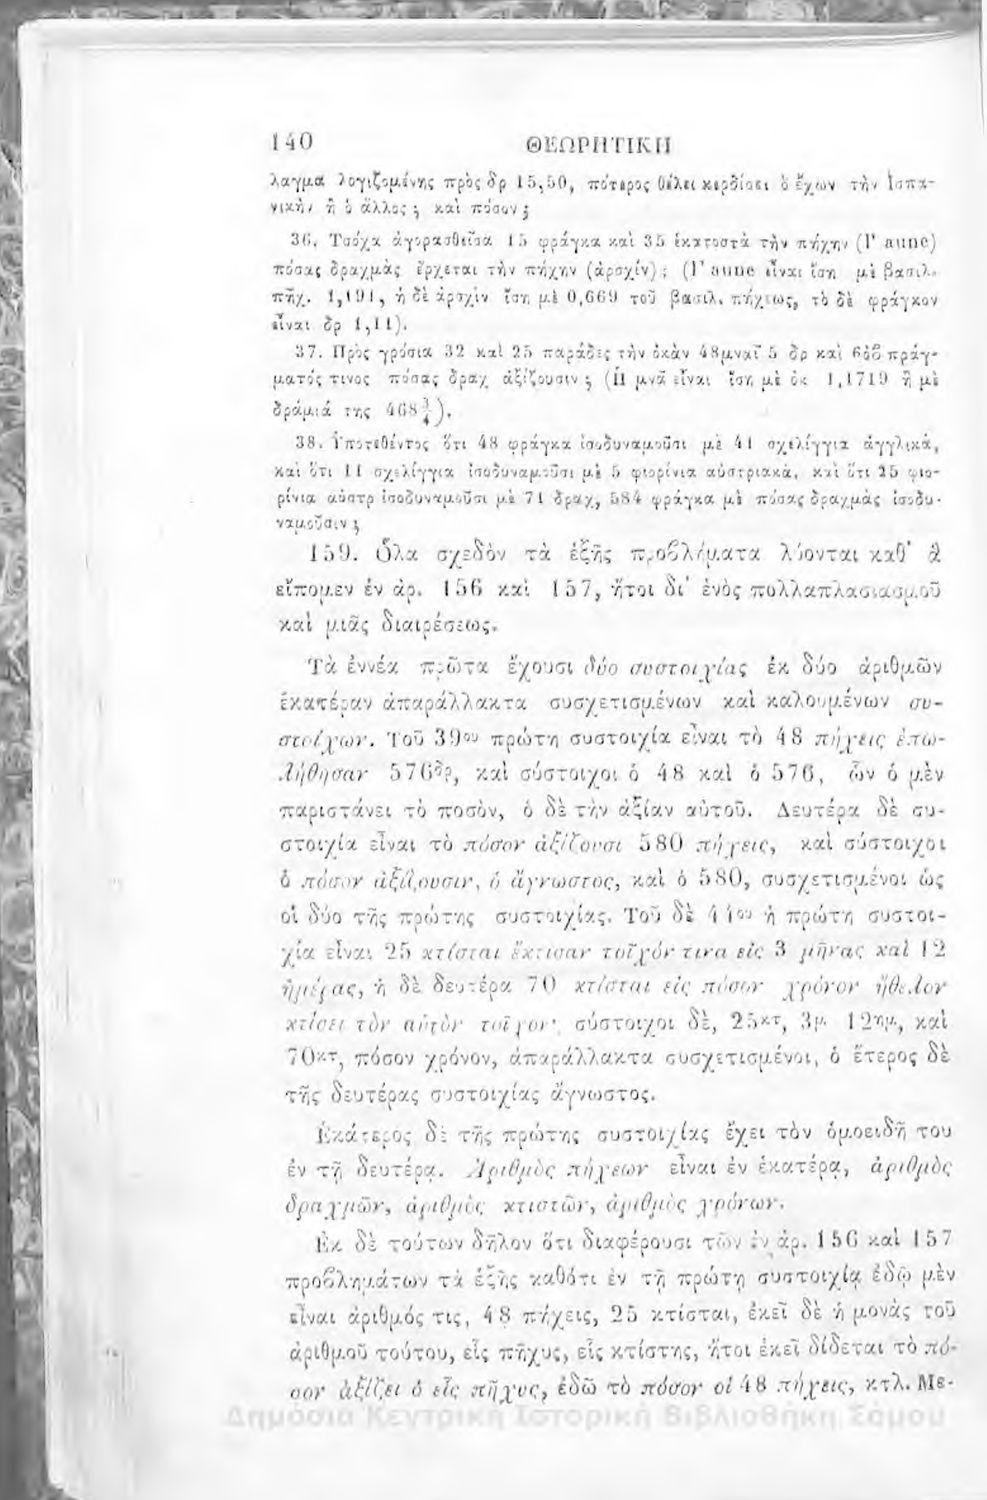 140 ΘΕΩΡΗΤΙΚΗ
λαγμα λογιζομένης πρὸς δρ 15,50, πότερος θέλει κερδίσει ὁ ἔχων τὴν Ἱσπα-
νικὴν ἢ ὁ ἄλλος; καὶ πόσον;
36. Τσόχα ἀγορασθεῖσα 15 φράγκα καὶ 35 ἑκατοστὰ τὴν πήχην (l' aune)
πόσας δραχμὰς ἔρχεται τὴν πήχην (ἀρσχίν); (l' aune εἶναι ἴση μὲ βασιλ.
πῆχ. 1,191, ἡ δὲ ἀρσχὶν ἴση μὲ 0,669 τοῦ βασιλ. πήχεως, τὸ δὲ φράγκον
εἶναι δρ 1,11).
37. Πρὸς γρόσια 32 καὶ 25 παράδες τὴν ὀκὰν 48μναῖ 5 δρ καὶ 6ὀβ πράγ-
ματός τινος πόσας δραχ ἀξίζουσιν; (Ἡ μνᾶ εἶναι ἴση μὲ ὀκ 1,1719 ἢ μὲ
δράμιά της 468¾).
38. Ὑποτεθέντος ὅτι 48 φράγκα ἰσοδυναμοῦσι μὲ 41 σχελίγγια ἀγγλικὰ,
καὶ ὅτι 11 σχελίγγια ἰσοδυναμοῦσι μὲ 5 φιορίνια αὐστριακὰ, καὶ ὅτι 25 φιο-
ρίνια αὐστρ ἰσοδυναμοῦσι μὲ 71 δραχ, 584 φράγκα μὲ πόσας δραχμὰς ἰσοδυ-
ναμοῦσιν;
159. Ὅλα σχεδὸν τὰ ἑξῆς προβλήματα λύονται καθ' ἃ
εἴπομεν ἐν ἀρ. 156 καὶ 157, ἤτοι δι' ἑνὸς πολλαπλασιασμοῦ
καὶ μιᾶς διαιρέσεως.
Τὰ ἐννέα πρῶτα ἔχουσι δύο συστοιχίας ἐκ δύο ἀριθμῶν
ἑκατέραν ἀπαράλλακτα συσχετισμένων καὶ καλουμένων συ-
στοίχων. Τοῦ 39ου πρώτη συστοιχία εἶναι τὸ 48 πήχεις ἐπω-
λήθησαν 576δρ, καὶ σύστοιχοι ὁ 48 καὶ ὁ 576, ὧν ὁ μὲν
παριστάνει τὸ ποσὸν, ὁ δὲ τὴν ἀξίαν αὐτοῦ. Δευτέρα δὲ συ-
στοιχία εἶναι τὸ πόσον ἀξίζουσι 580 πήχεις, καὶ σύστοιχοι
ὁ πόσον ἀξίζουσιν, ὁ ἄγνωστος, καὶ ὁ 580, συσχετισμένοι ὡς
οἱ δύο τῆς πρώτης συστοιχίας. Τοῦ δὲ 44ου ἡ πρώτη συστοι-
χία εἶναι 25 κτίσται ἔκτισαν τοῖχόν τινα εἰς 3 μῆνας καὶ 12
ἡμέρας, ἡ δὲ δευτέρα 70 κτίσται εἰς πόσον χρόνον ἤθελον
κτίσει τὸν αὐτὸν τοῖχον· σύστοιχοι δὲ, 25κτ, 3μ 12ημ, καὶ
70κτ, πόσον χρόνον, ἀπαράλλακτα συσχετισμένοι, ὁ ἕτερος δὲ
τῆς δευτέρας συστοιχίας ἄγνωστος.
Ἑκάτερος δὲ τῆς πρώτης συστοιχίας ἔχει τὸν ὁμοειδῆ του
ἐν τῇ δευτέρᾳ. Ἀριθμὸς πήχεων εἶναι ἐν ἑκατέρᾳ, ἀριθμὸς
δραχμῶν, ἀριθμὸς κτιστῶν, ἀριθμὸς χρόνων.
Ἐκ δὲ τούτων δῆλον ὅτι διαφέρουσι τῶν ἐν ἀρ. 156 καὶ 157
προβλημάτων τὰ ἑξῆς καθότι ἐν τῇ πρώτῃ συστοιχίᾳ ἐδῶ μὲν
εἶναι ἀριθμός τις, 48 πήχεις, 25 κτίσται, ἐκεῖ δὲ ἡ μονὰς τοῦ
ἀριθμοῦ τούτου, εἷς πῆχυς, εἷς κτίστης, ἤτοι ἐκεῖ δίδεται τὸ πό-
σον ἀξίζει ὁ εἷς πῆχυς, ἐδῶ τὸ πόσον οἱ 48 πήχεις, κτλ. Με-
Δημόσια Κεντρική Ιστορική Βιβλιοθήκη Σάμου